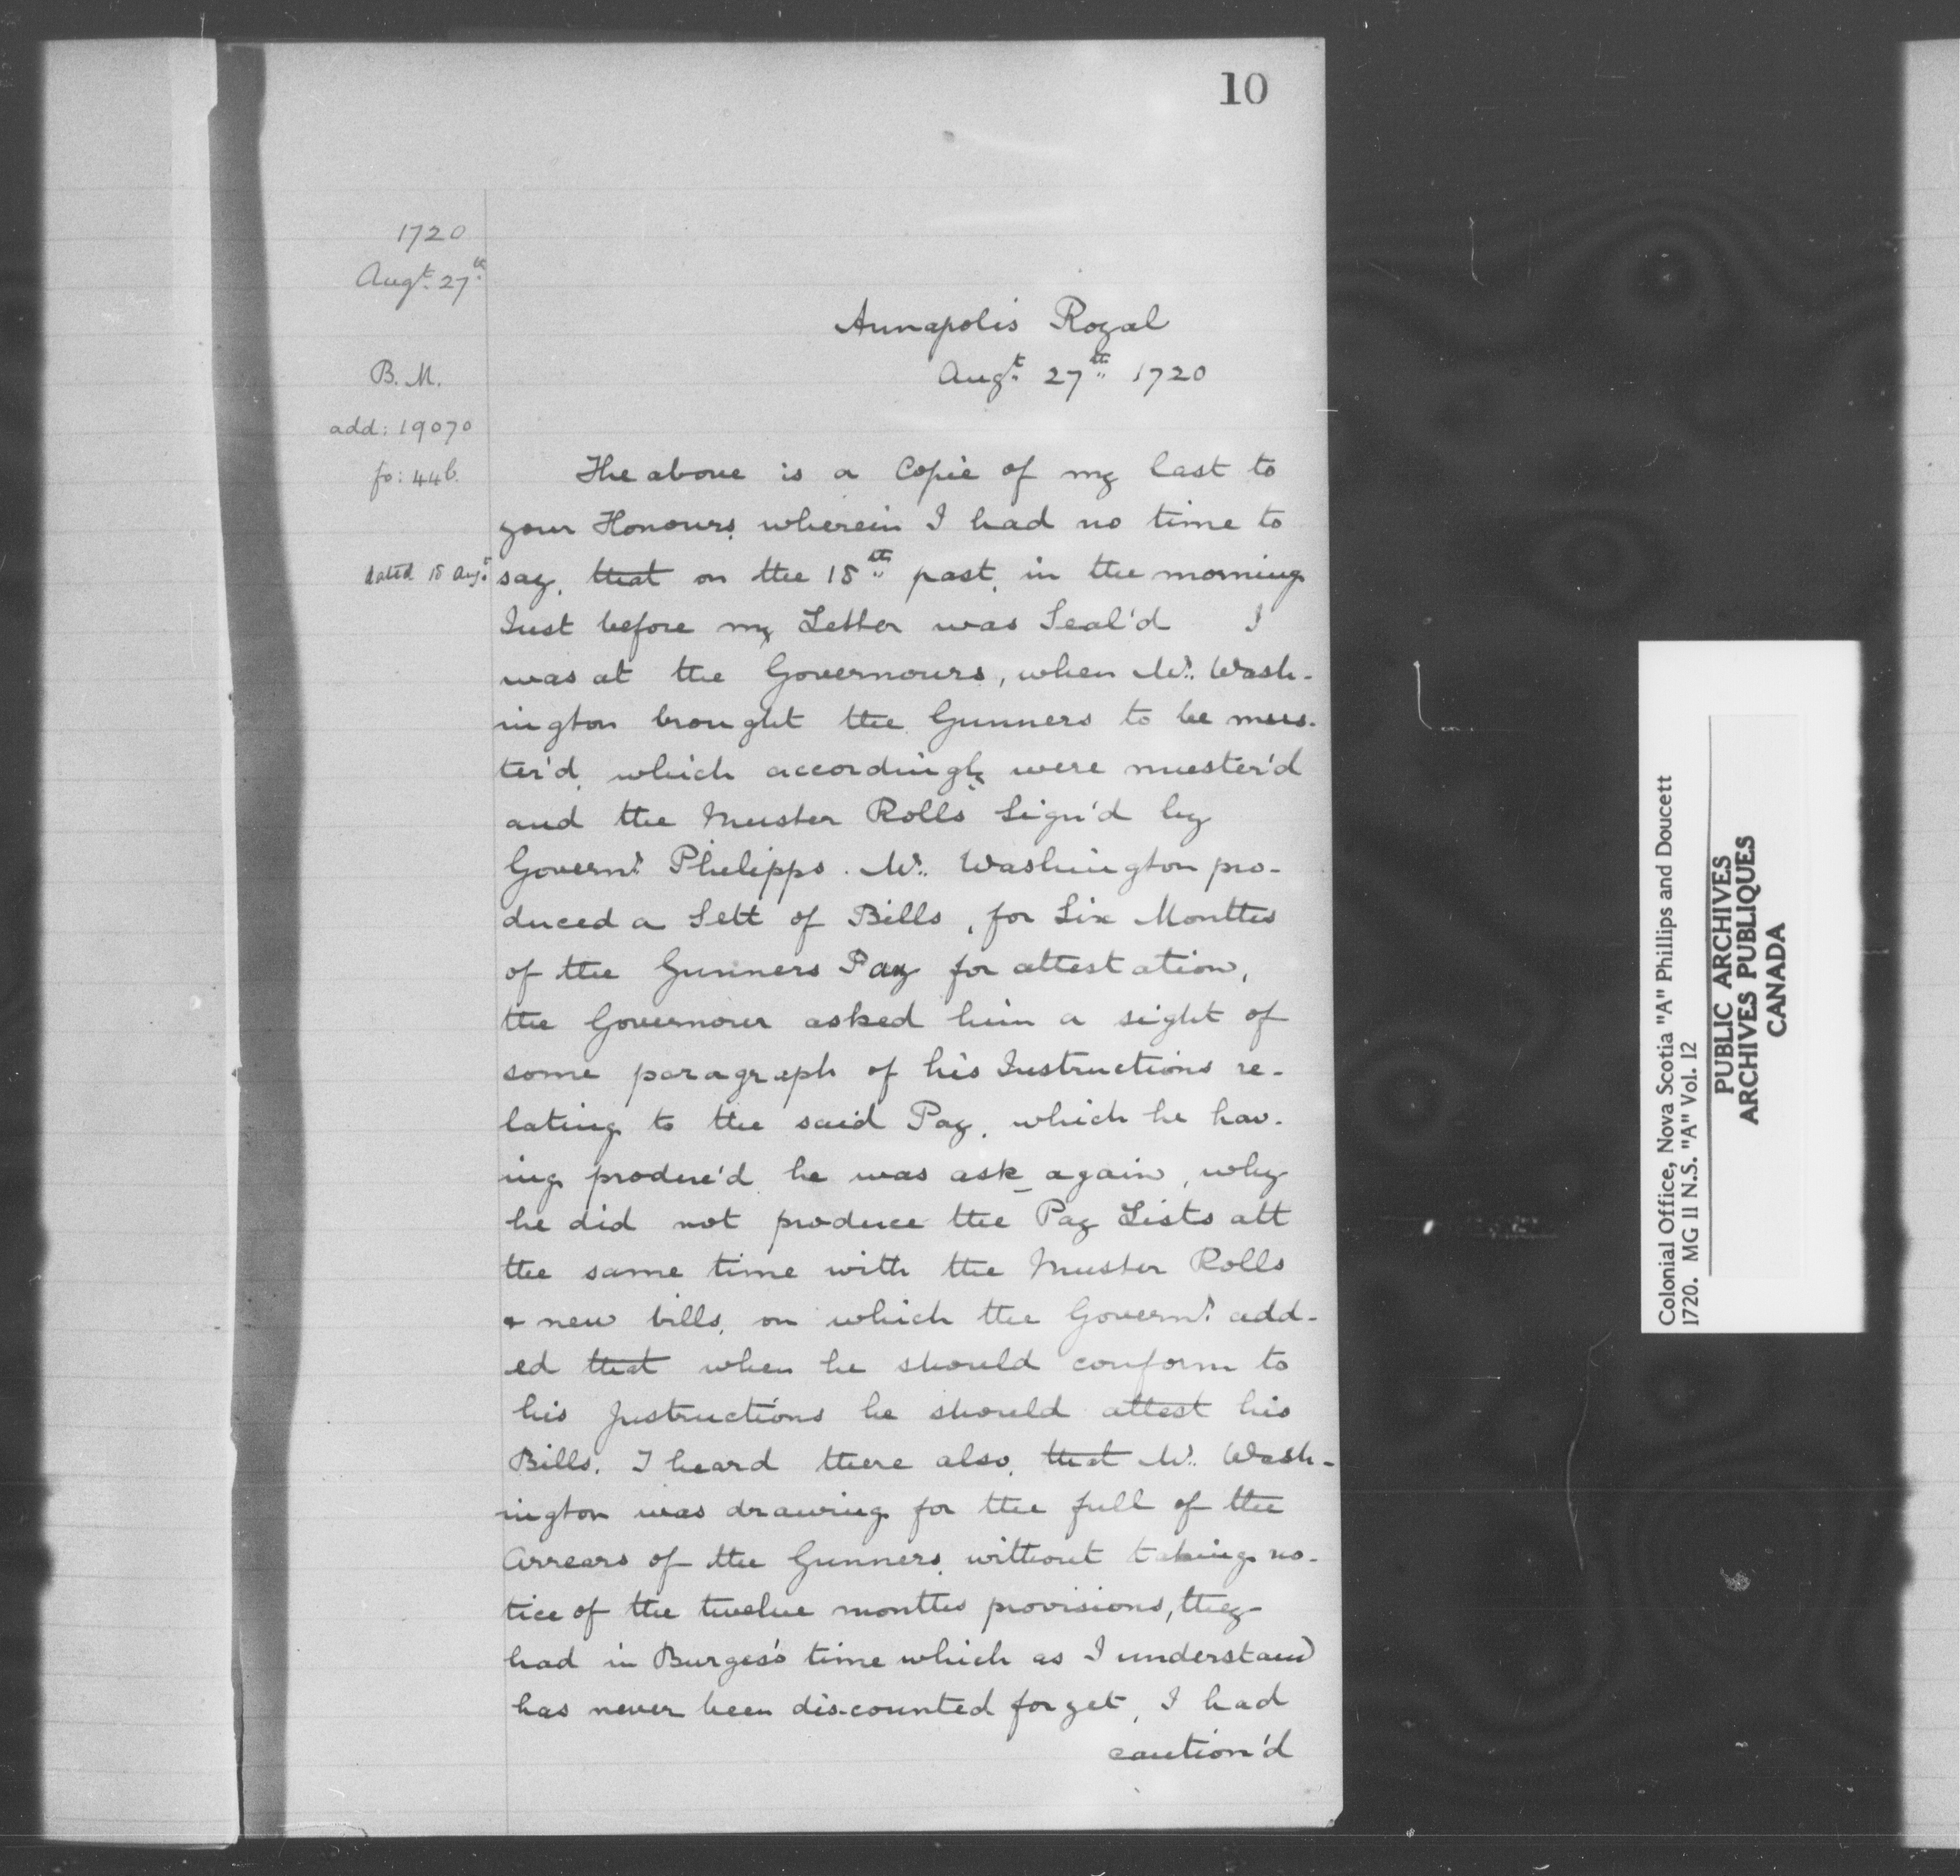 10
1720
Augt. 27th.
B. M.
add: 19070
fo: 44b.
dated 18 Augt.
Annapolis Royal
Augt. 27th. 1720
The above is a Copie of my last to
your Honours, wherein I had no time to
say, that on the 18th. past, in the morning
Just before my Letter was Seal'd I
was at the Governours, when Mr. Wash-
ington brought the Gunners to be mus-
ter'd, which accordingly were muster'd
and the Muster Rolls Sign'd by
Governr. Phelipps. Mr. Washington pro-
duced a Sett of Bills, for Six Months
of the Gunners Pay for attestation,
the Governour asked him a sight of
some paragraph of his Instructions re-
lating to the said Pay, which he hav-
ing produc'd he was ask again, why
he did not produce the Pay Lists att
the same time with the Muster Rolls
& new bills, on which the Governr. add-
ed that when he should conform to
his Instructions he should attest his
Bills. I heard there also, that Mr. Wash-
ington was drawing for the full of the
Arrears of the Gunners, without taking no-
tice of the twelve months provisions, they
had in Burgess's time which as I understand
has never been discounted for yet, I had
caution'd
Colonial Office, Nova Scotia "A" Phillips and Doucett
1720. MG 11 N.S. "A" Vol. 12
PUBLIC ARCHIVES
ARCHIVES PUBLIQUES
CANADA